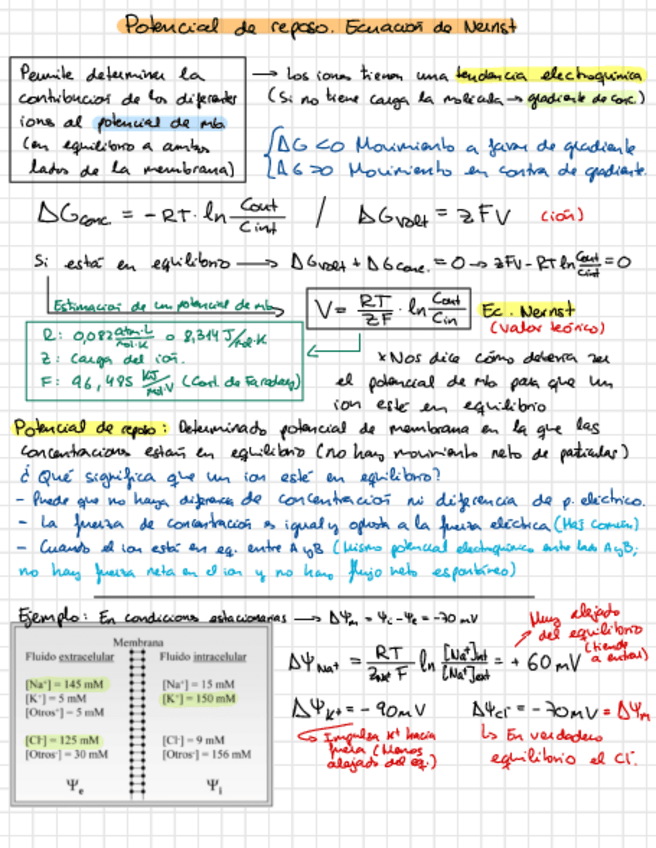 Potencial de reposo. Ecuación de Nernst
Permite determinar la
contribución de los diferentes
iones al potencial de mb
(en equilibrio a ambos
lados de la membrana)
→ Los iones tienen una tendencia electroquímica
(Si no tiene carga la molécula → gradiente de conc.)
ΔG<0 Movimiento a favor de gradiente
ΔG>0 Movimiento en contra de gradiente.
ΔGconc = -RT·ln Cout/Cint / ΔGvolt = zFV (ión)
Si está en equilibrio → ΔGvolt + ΔGconc. = 0 → zFV - RT ln Cout/Cint = 0
Estimación de un potencial de mb
V = RT/ZF · ln Cout/Cin
Ec. Nernst
(valor teórico)
R: 0,082 atm·L/mol·K o 8,314 J/mol·K
Z: carga del ión.
F: 96,485 KJ/mol·V (Const. de Faraday)
* Nos dice cómo debería ser
el potencial de mb para que un
ion esté en equilibrio
Potencial de reposo: Determinado potencial de membrana en la que las
concentraciones están en equilibrio (no hay movimiento neto de partículas)
¿Qué significa que un ion esté en equilibrio?
- Puede que no haya diferencia de concentración ni diferencia de p. eléctrico.
- La fuerza de concentración es igual y opuesta a la fuerza eléctrica (Más común)
- Cuando el ion está en eq. entre A y B (mismo potencial electroquímico entre lado A y B;
no hay fuerza neta en el ion y no hay flujo neto espontáneo)
Ejemplo: En condiciones estacionarias → ΔΨm = Ψi - Ψe = -70 mV
Muy alejado
del equilibrio
(tiende
a entrar)
Membrana
Fluido extracelular Fluido intracelular
[Na⁺] = 145 mM [Na⁺] = 15 mM
[K⁺] = 5 mM [K⁺] = 150 mM
[Otros⁺] = 5 mM
[Cl⁻] = 125 mM [Cl⁻] = 9 mM
[Otros⁻] = 30 mM [Otros⁻] = 156 mM
Ψe Ψi
ΔΨNa⁺ = RT/ZNa⁺F ln [Na⁺]ext/[Na⁺]int = +60 mV
ΔΨK⁺ = -90mV
Impulsa K⁺ hacia
fuera (Menos
alejado del eq.)
ΔΨCl⁻ = -70mV = ΔΨm
↳ En verdadero
equilibrio el Cl⁻.